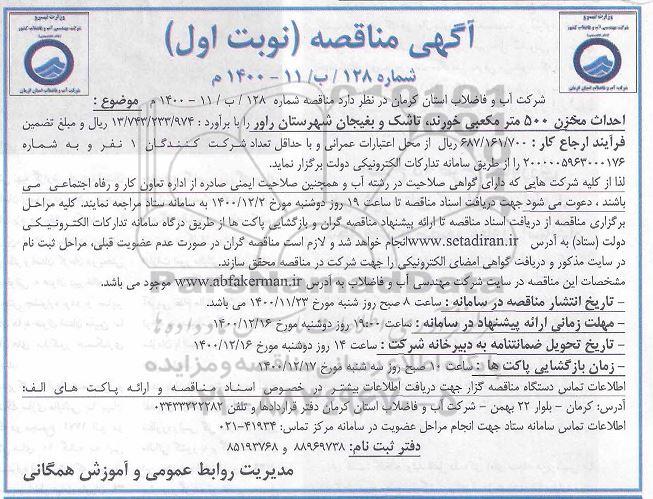 آگهی مناقصه (نوبت اول)
شماره ۱۲۸ / ب / ۱۱ - ۱۴۰۰ م
شرکت آب و فاضلاب استان کرمان در نظر دارد مناقصه شماره ۱۲۸ / ب / ۱۱ - ۱۴۰۰ م موضوع :
احداث مخزن ۵۰۰ متر مکعبی خورند، تاشک و بغیجان شهرستان راور را با برآورد : ۱۳/۷۴۳/۲۳۳/۹۷۴ ریال و مبلغ تضمین
فرآیند ارجاع کار : ۶۸۷/۱۶۱/۷۰۰ ریال از محل اعتبارات عمرانی و با حداقل تعداد شرکت کنندگان ۱ نفر و به شماره
۲۰۰۰۰۰۵۹۶۳۰۰۰۱۷۶ را از طریق سامانه تدارکات الکترونیکی دولت برگزار نماید.
لذا از کلیه شرکت هایی که دارای گواهی صلاحیت در رشته آب و همچنین صلاحیت ایمنی صادره از اداره تعاون کار و رفاه اجتماعی می
باشند ، دعوت می شود جهت دریافت اسناد مناقصه تا ساعت ۱۹ روز دوشنبه مورخ ۱۴۰۰/۱۲/۲ به سامانه ستاد مراجعه نمایند. کلیه مراحل
برگزاری مناقصه از دریافت اسناد مناقصه تا ارائه پیشنهاد مناقصه گران و بازگشایی پاکت ها از طریق درگاه سامانه تدارکات الکترونیکی
دولت (ستاد) به آدرس www.setadiran.ir انجام خواهد شد و لازم است مناقصه گران در صورت عدم عضویت قبلی، مراحل ثبت نام
در سایت مذکور و دریافت گواهی امضای الکترونیکی را جهت شرکت در مناقصه محقق سازند.
مشخصات این مناقصه در سایت شرکت مهندسی آب و فاضلاب به آدرس www.abfakerman.ir موجود می باشد.
- تاریخ انتشار مناقصه در سامانه : ساعت ۸ صبح روز شنبه مورخ ۱۴۰۰/۱۱/۲۳ می باشد.
- مهلت زمانی ارائه پیشنهاد در سامانه : ساعت ۱۹:۰۰ روز دوشنبه مورخ ۱۴۰۰/۱۲/۱۶
- تاریخ تحویل ضمانتنامه به دبیرخانه شرکت : ساعت ۱۴ روز دوشنبه مورخ ۱۴۰۰/۱۲/۱۶
- زمان بازگشایی پاکت ها : ساعت ۱۰ صبح روز سه شنبه مورخ ۱۴۰۰/۱۲/۱۷
اطلاعات تماس دستگاه مناقصه گزار جهت دریافت اطلاعات بیشتر در خصوص اسناد مناقصه و ارائه پاکت های الف:
آدرس: کرمان - بلوار ۲۲ بهمن - شرکت آب و فاضلاب استان کرمان دفتر قراردادها و تلفن ۰۳۴۳۳۲۲۲۲۸۲
اطلاعات تماس سامانه ستاد جهت انجام مراحل عضویت در سامانه مرکز تماس: ۴۱۹۳۴-۰۲۱
دفتر ثبت نام: ۸۸۹۶۹۷۳۸ و ۸۵۱۹۳۷۶۸
مدیریت روابط عمومی و آموزش همگانی